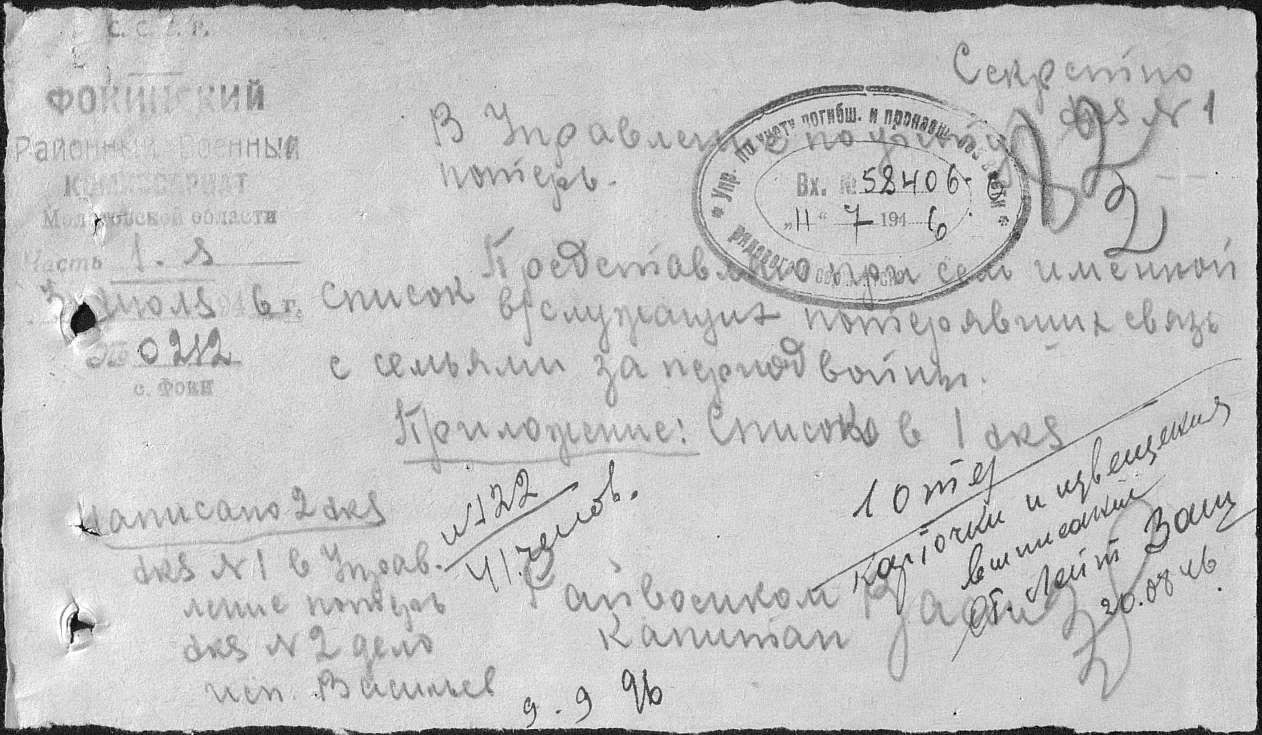 С. С. С. Р.
ФОКИНСКИЙ
Районный Военный
КОМИССАРИАТ
Молотовской области
Часть 1. я
3 июля 1946 г.
№ 0212
с. Фоки
Секретно
экз N 1
В Управление по учету
потерь.
Упр. по учету погибш. и пропавш.
рядового
Вх. № 58406
„11“ 7 1946
Представляю при сем именной
список в/служащих потерявших связь
с семьями за период войны.
Приложение: Список в 1 экз
Написано 2 экз
экз N 1 в Управ-
ление потерь
экз N 2 дело
исп. Васильев
N 122
41. челов.
Райвоенком
Капитан
10 т/у
карточки и извещения
выписаны
Ст. Лейт
20.08.46.
9. 9 46